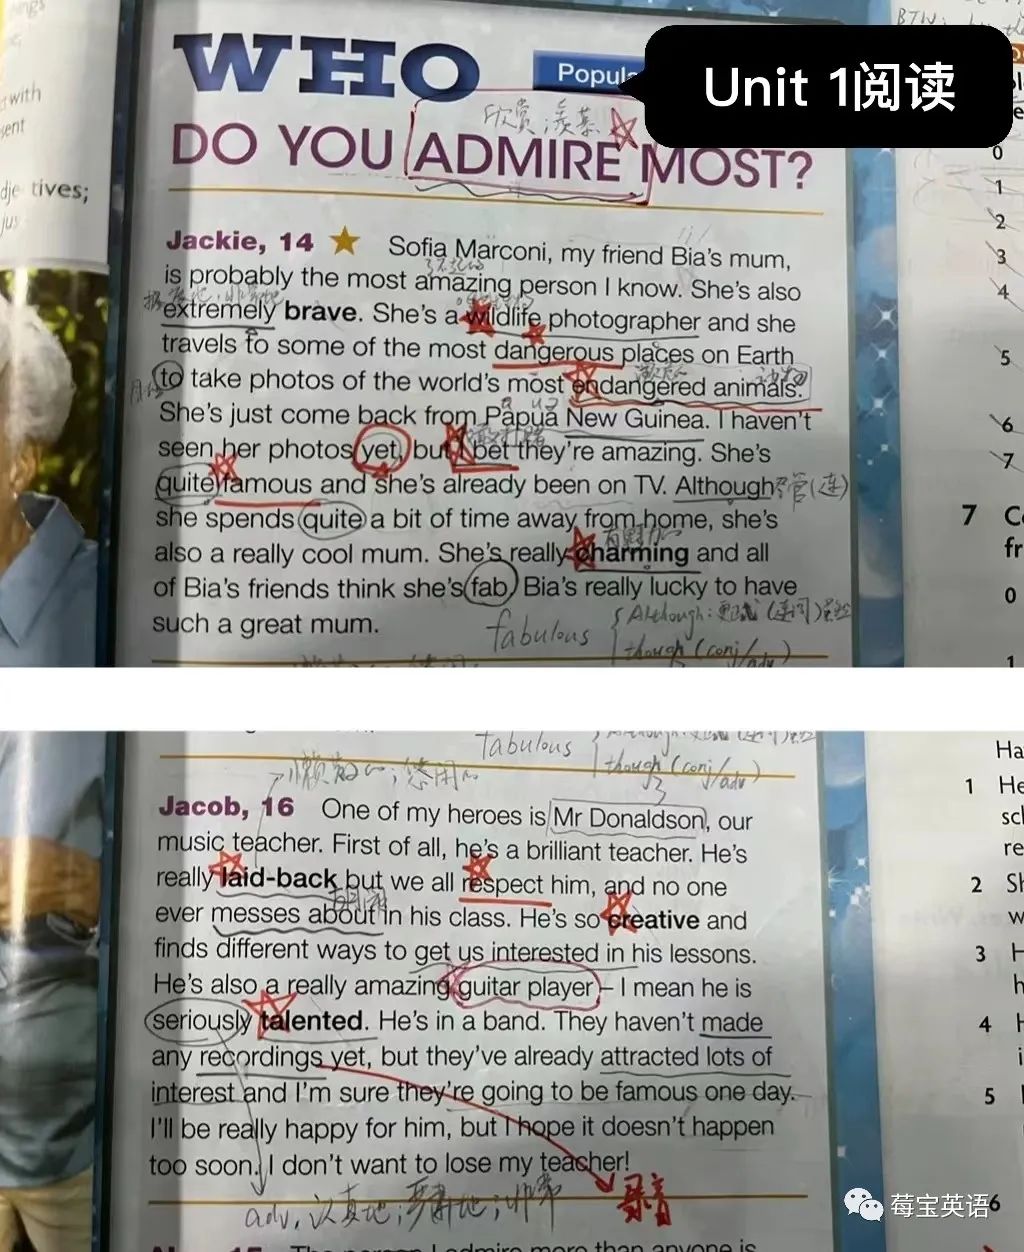 WHO
Popula
Unit 1阅读
欣赏；羡慕
DO YOU ADMIRE MOST?
with
sent
dje tives;
jus
Jackie, 14 ★ Sofia Marconi, my friend Bia's mum,
is probably the most amazing person I know. She's also
extremely brave. She's a wildlife photographer and she
travels to some of the most dangerous places on Earth
to take photos of the world's most endangered animals.
She's just come back from Papua New Guinea. I haven't
seen her photos yet, but I bet they're amazing. She's
quite famous and she's already been on TV. Although
she spends quite a bit of time away from home, she's
also a really cool mum. She's really charming and all
of Bia's friends think she's fab. Bia's really lucky to have
such a great mum.
fabulous
Although:
though (conj/adv)
0
1
2
3
4
5
6
7
7 Co
fr
0
1
fabulous
though (conj/adv)
Jacob, 16 One of my heroes is Mr Donaldson, our
music teacher. First of all, he's a brilliant teacher. He's
really laid-back but we all respect him, and no one
ever messes about in his class. He's so creative and
finds different ways to get us interested in his lessons.
He's also a really amazing guitar player – I mean he is
seriously talented. He's in a band. They haven't made
any recordings yet, but they've already attracted lots of
interest and I'm sure they're going to be famous one day.
I'll be really happy for him, but I hope it doesn't happen
too soon. I don't want to lose my teacher!
adv, 认真地；严肃地；非常
录音
Ha
1 He
scl
re
2 Sh
w
3 H
h
4 H
i
5
6
莓宝英语